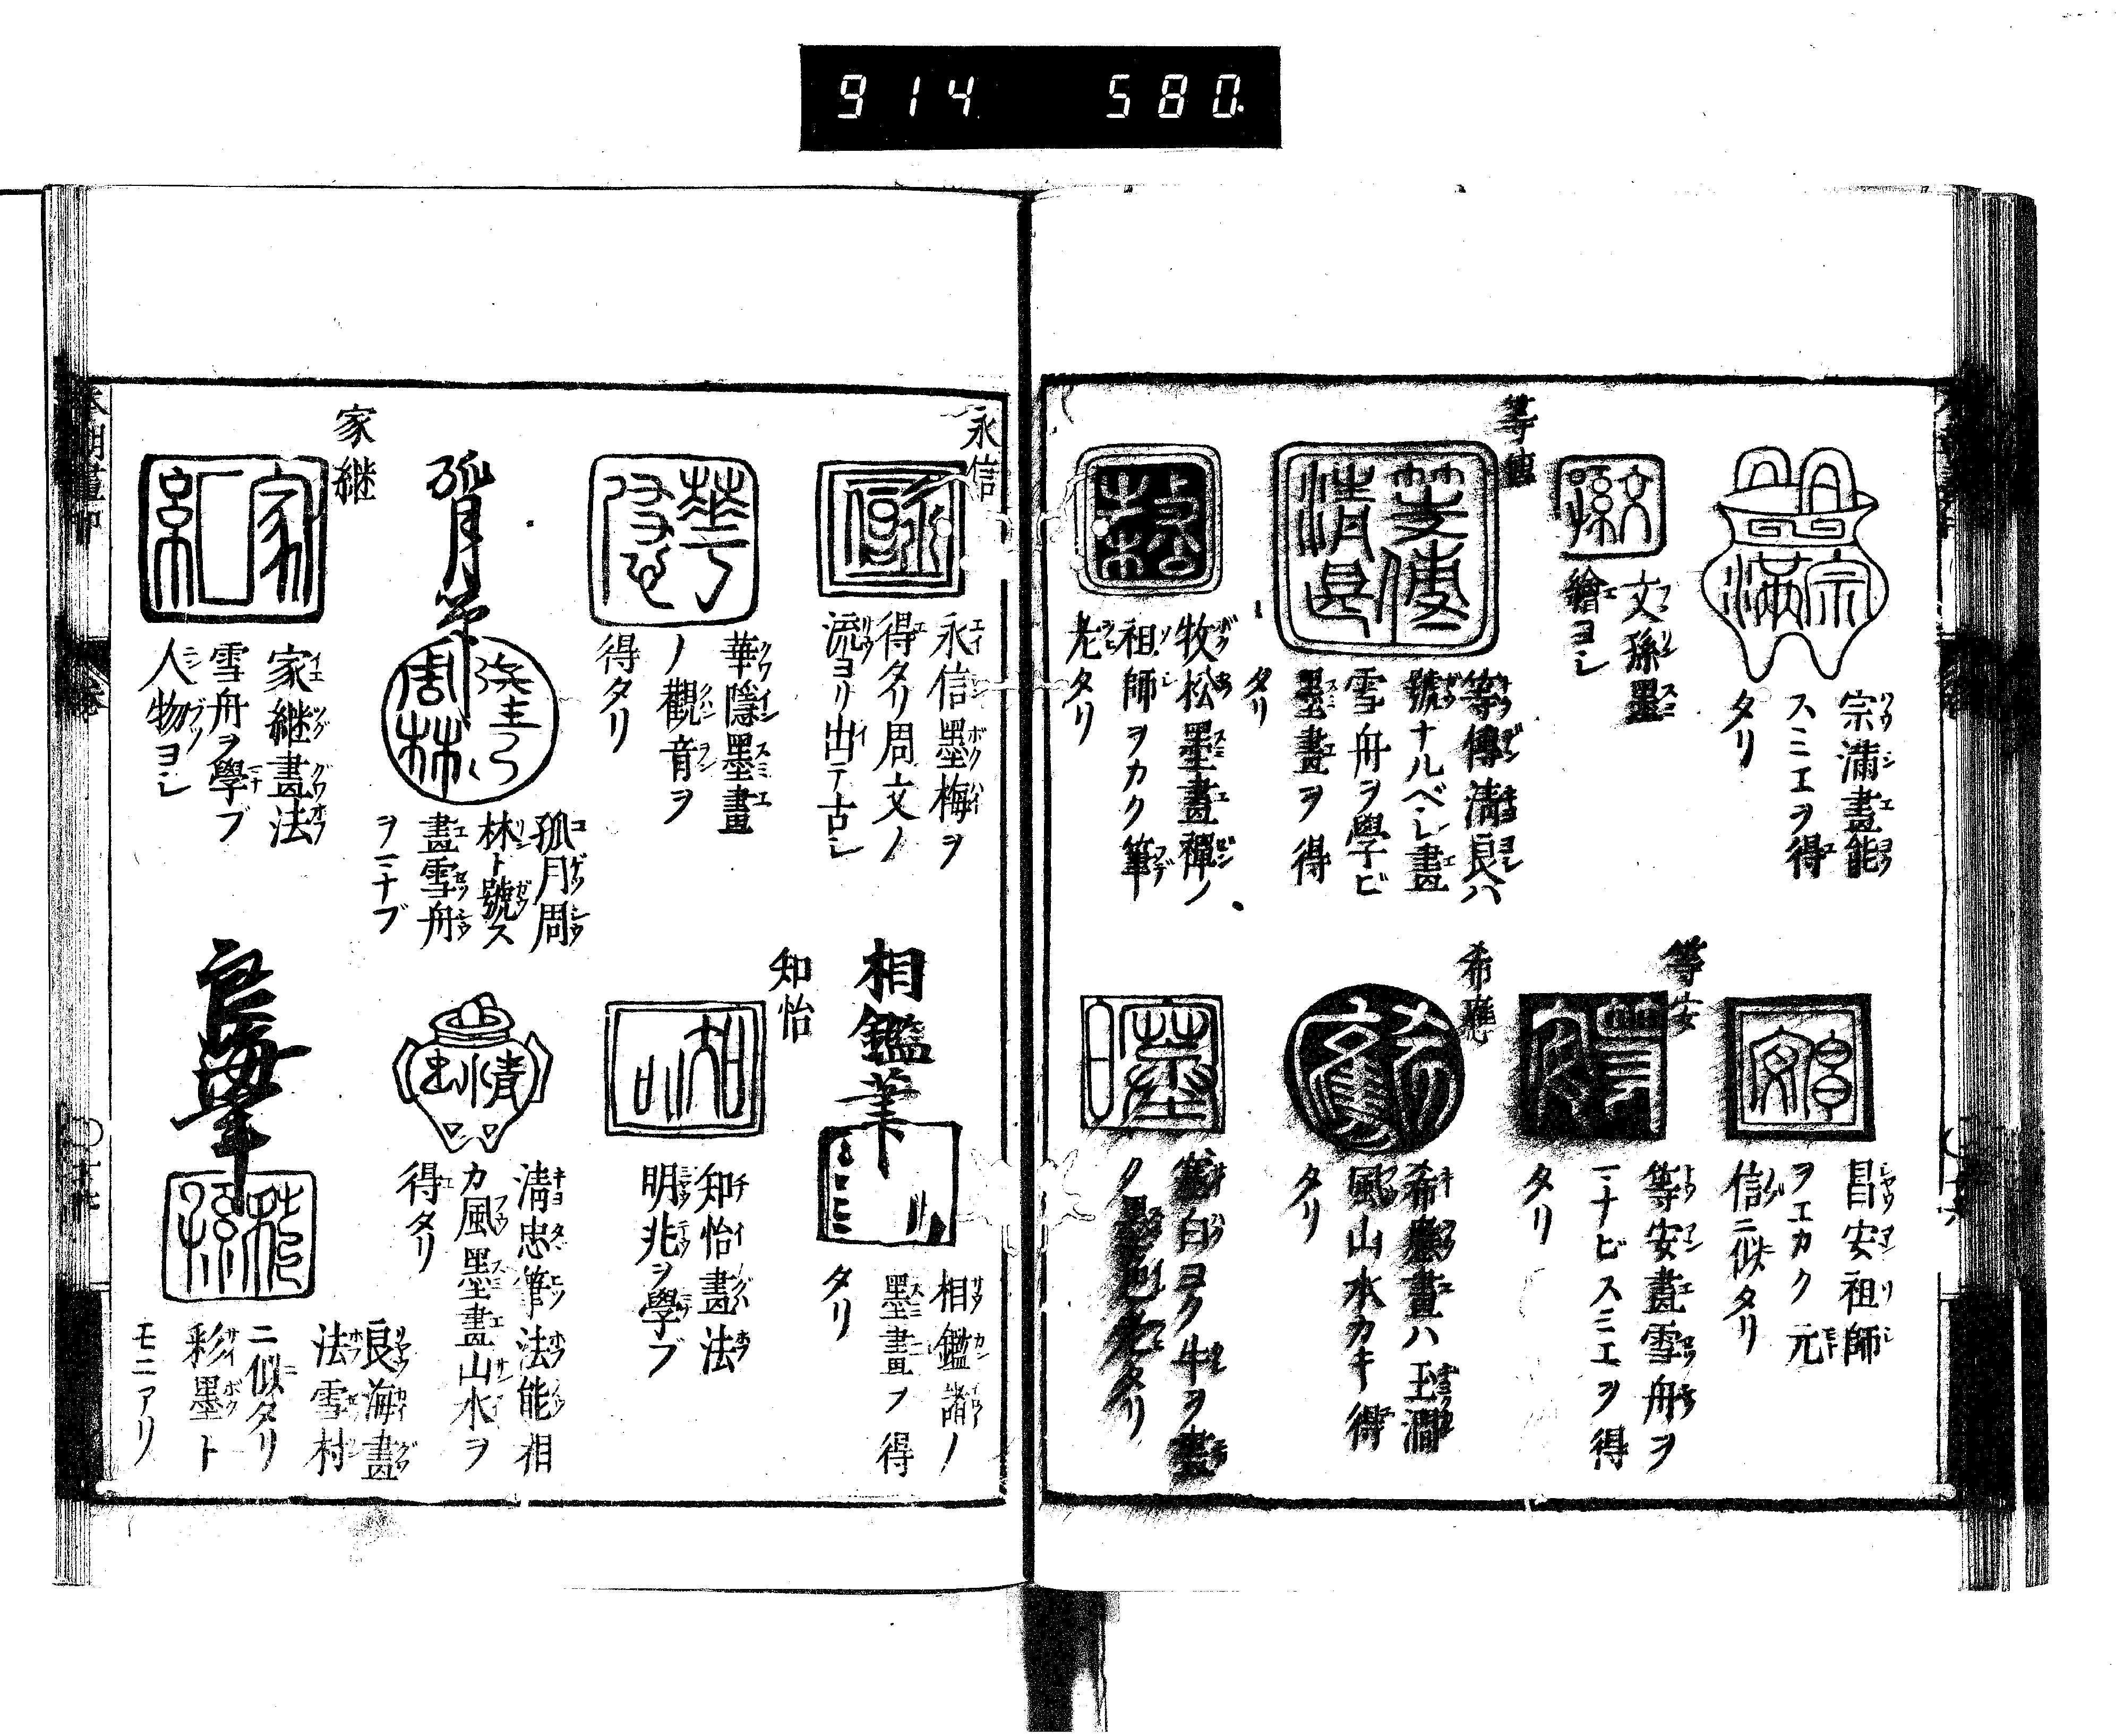 914 580
宗滿
宗滿畫能
スミエヲ得
タリ
文孫
文孫墨
繪ヨシ
等傳
等傳
清良
等傳清良ハ
號ナルベシ畫
雪舟ヲ學ビ
墨畫ヲ得
タリ
牧松墨畫禪ノ
祖師ヲカク筆
老タリ
昌安
昌安祖師
ヲエカク元
信ニ似タリ
等安
等安畫雪舟ヲ
マナビスミエヲ得
タリ
希應
希應畫ハ玉澗
風山水カキ得
タリ
白ヨク牛ヲ畫
ク墨色老タリ
永信
永信
永信墨梅ヲ
得タリ周文ノ
流ヨリ出テ古シ
華隱
華隱墨畫
ノ觀音ヲ
得タリ
孤月筆
周林
孤月周
林ト號ス
畫雪舟
ヲマナブ
家継
家継
家継畫法
雪舟ヲ學ブ
人物ヨシ
相鑑筆
相鑑諸ノ
墨畫ヲ得
タリ
知怡
知怡畫法
明兆ヲ學ブ
清忠
清忠筆法能相
カ風墨畫山水ヲ
得タリ
良海筆
良海畫
法雪村
ニ似タリ
彩墨ト
モニアリ